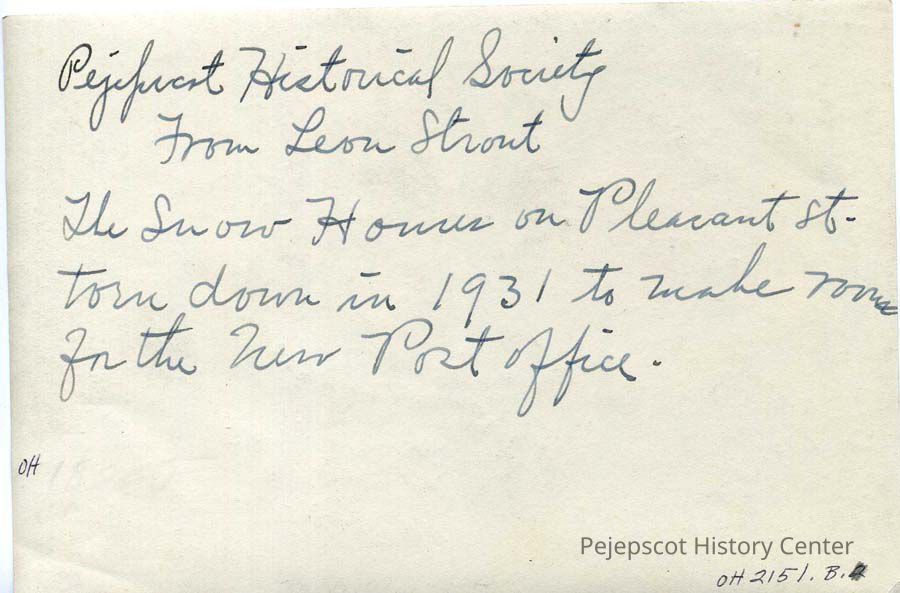 Pejepscot Historical Society
From Leon Strout
The Snow Houses on Pleasant St-
torn down in 1931 to make room
for the New Post office.
OH
Pejepscot History Center
OH 2151. B.